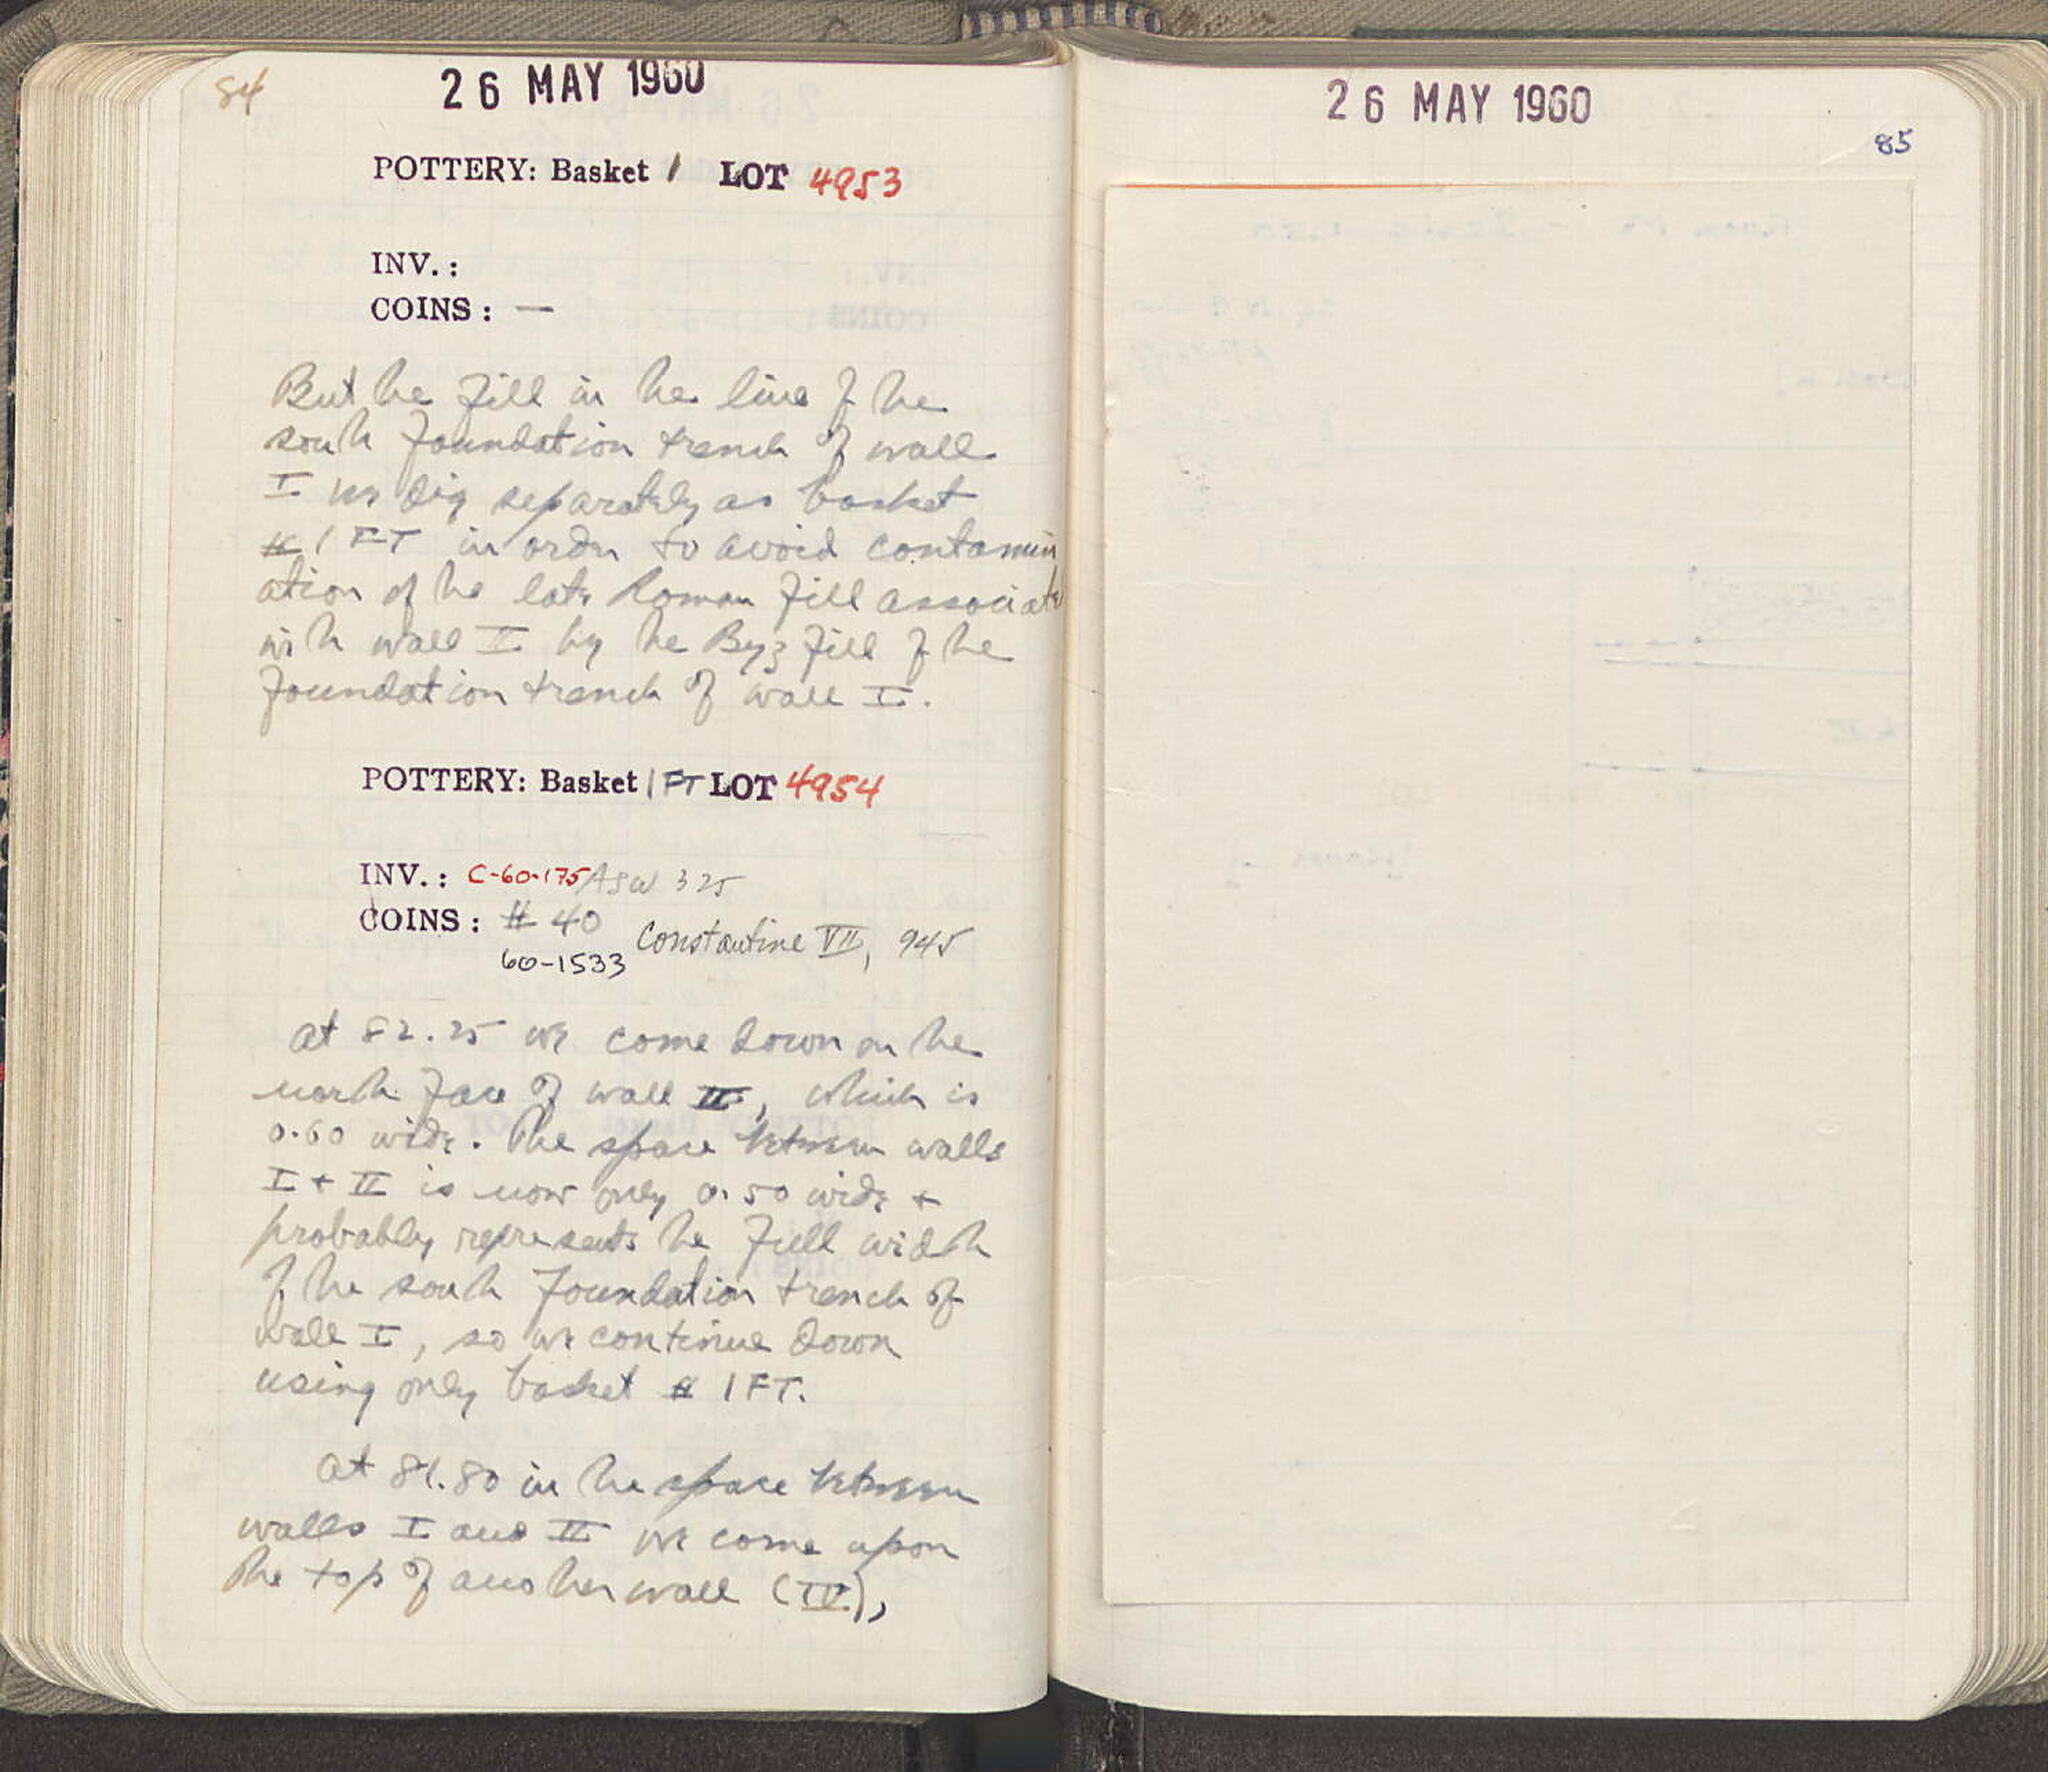 84
26 MAY 1960
POTTERY: Basket 1 LOT 4953
INV.:
COINS: —
But the fill in the line of the
south foundation trench of wall
I we dig separately as basket
# 1 FT in order to avoid contamin
ation of the late Roman fill associated
with wall II by the Byz fill of the
foundation trench of wall I.
POTTERY: Basket 1 FT LOT 4954
INV.: C-60-175 ASW 325
COINS: # 40
60-1533 Constantine VII, 945
At 82.25 we come down on the
north face of wall II, which is
0.60 wide. The space between walls
I + II is now only 0.50 wide +
probably represents the full width
of the south foundation trench of
wall I, so we continue down
using only basket # 1 FT.
At 81.80 in the space between
walls I and II we come upon
the top of another wall (IV),
26 MAY 1960
85